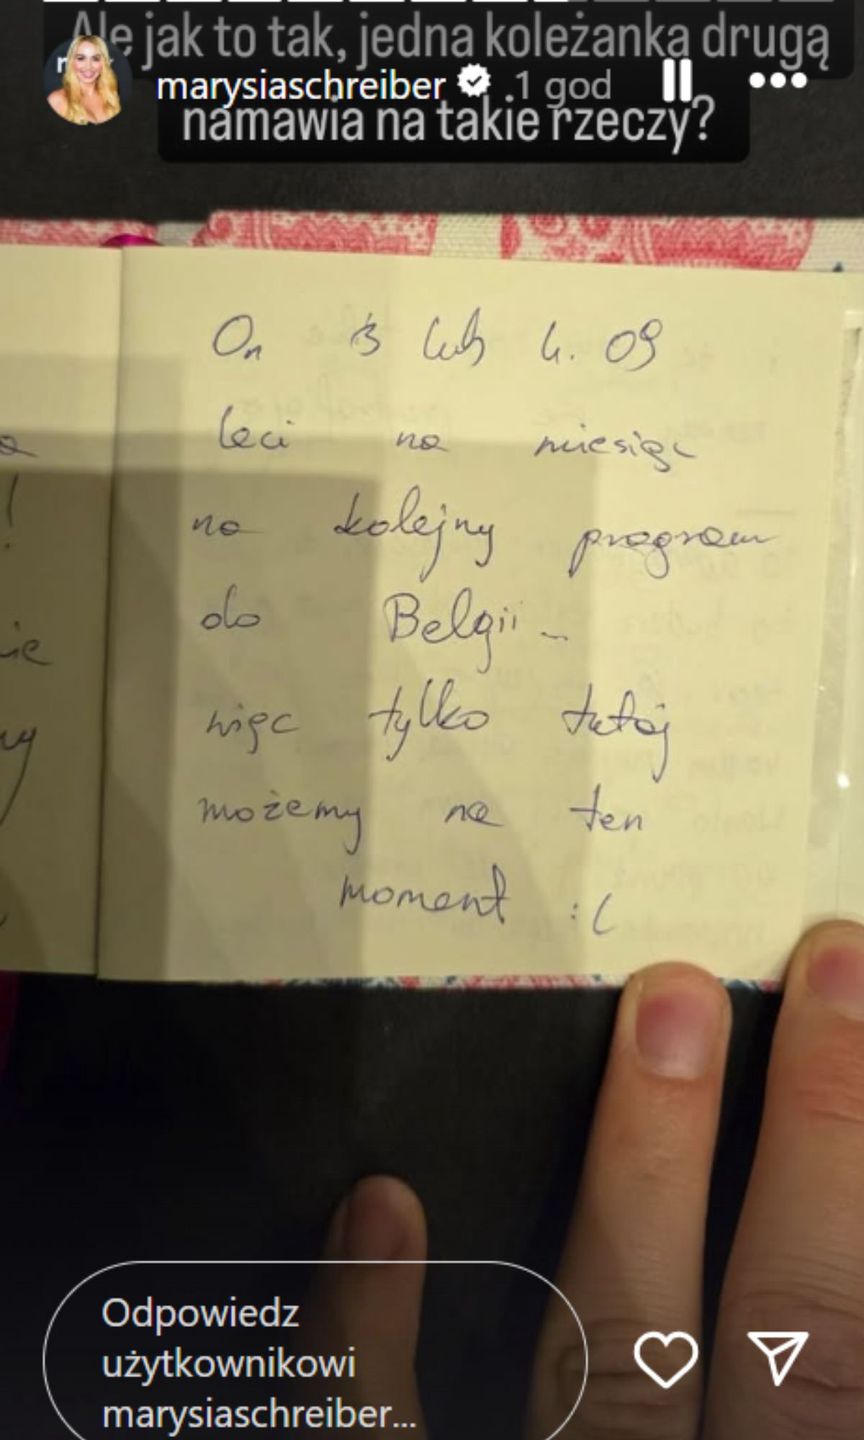 Ale jak to tak, jedna koleżanka drugą
marysiaschreiber 1 god
namawia na takie rzeczy?
On 3 lub 4. 09
leci na miesiąc
na kolejny program
do Belgii...
więc tylko tutaj
możemy na ten
moment :(
Odpowiedz
użytkownikowi
marysiaschreiber...